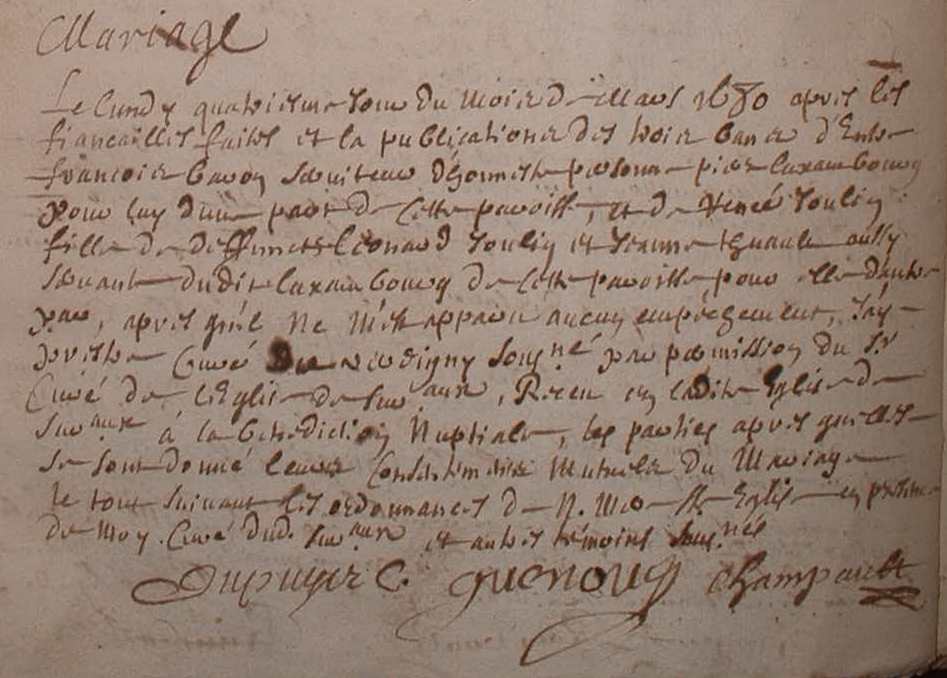 Mariage
Le Lundy quatriesme Jour du Mois de Mars 1680 apres les
fiancailles faites et la publications des trois bancs d'Entre
francois bavoy serviteur d'honneste personne pierre Luxambourg
pour luy d'une part de Cette paroisse, et de Renée Jouliy
fille de deffuncts Leonard Jouliy et Jeanne aussy
servante dudit Luxambourg de Cette paroisse pour elle d'autre
par, apres qu'il ne m'est apparu aucun empeschement, J'ay
prestre Curé de sousné par permission du Sr
Curé de L'Eglise de Suvaux, Receu en ladite Eglise de
Suvaux à la benediction Nuptiale, les parties apres qu'elles
se sont donné leurs Consentements Mutuels du Mariage
le tout suivant les ordonnances de N. Mere Ste Eglise en presence
de Moy Curé dud. Suvaux et autres témoins sousnés
Dupuyez C. Guenouy Champault